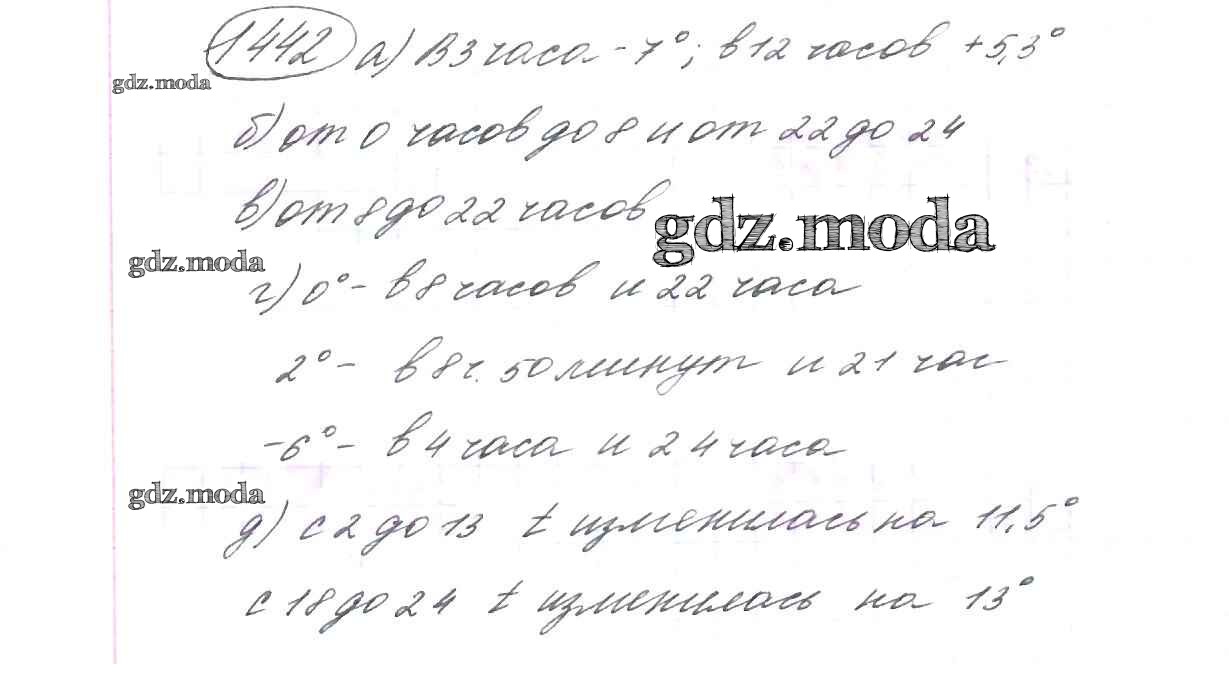 1442 а) В 3 часа - 7°; в 12 часов +5,3°
gdz.moda
б) от 0 часов до 8 и от 22 до 24
в) от 8 до 22 часов
gdz.moda
gdz.moda
г) 0° - в 8 часов и 22 часа
2° - в 8 ч. 50 минут и 21 час
-6° - в 4 часа и 24 часа
gdz.moda
д) с 2 до 13 t изменилась на 11,5°
с 18 до 24 t изменилась на 13°